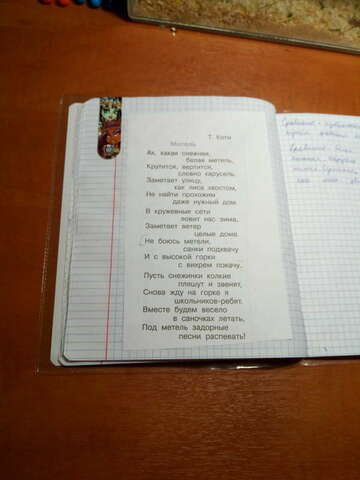 Т. Кети
Метель
Ах, какая снежная,
белая метель,
Крутится, вертится,
словно карусель.
Заметает улицу,
как лиса хвостом,
Не найти прохожим
даже нужный дом.
В кружевные сети
ловит нас зима,
Заметает ветер
целые дома.
Не боюсь метели,
санки подхвачу
И с высокой горки
с вихрем покачу.
Пусть снежинки колкие
пляшут и звенят,
Снова жду на горке я
школьников-ребят.
Вместе будем весело
в саночках летать,
Под метель задорные
песни распевать!